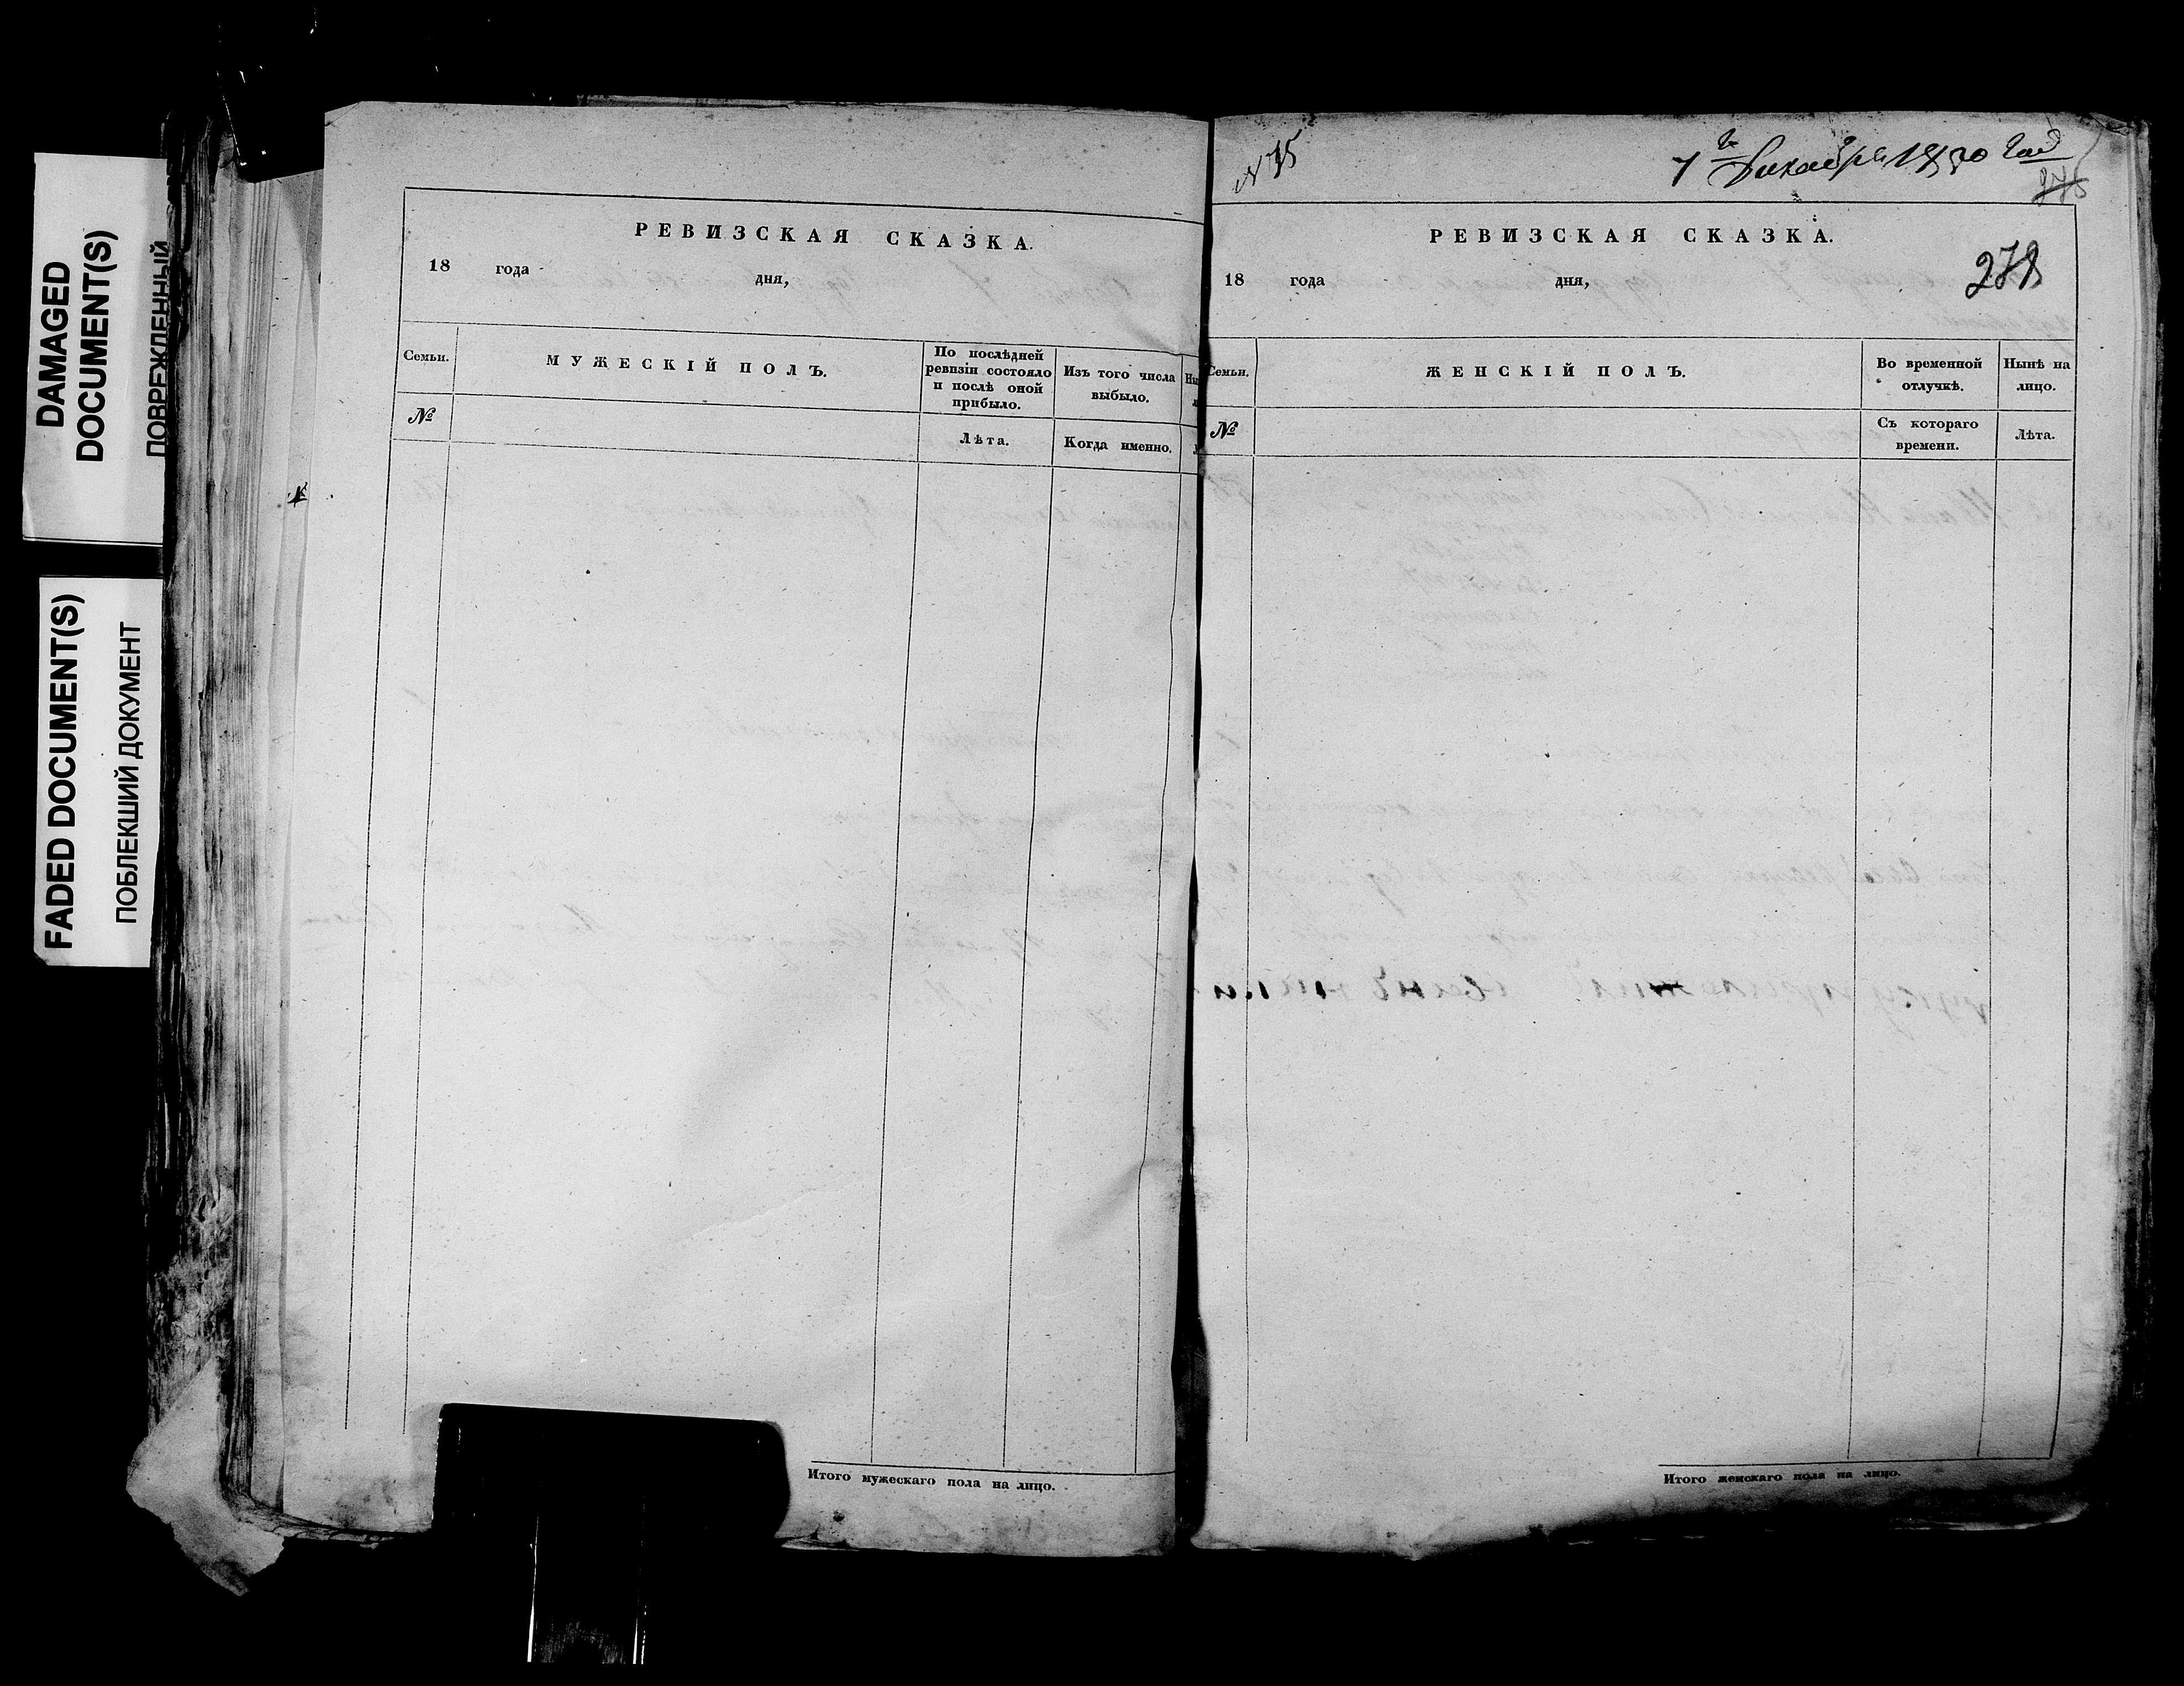 DAMAGED
DOCUMENT(S)
ПОВРЕЖДЕННЫЙ
FADED DOCUMENT(S)
ПОБЛЕКШИЙ ДОКУМЕНТ
РЕВИЗСКАЯ СКАЗКА.
18 года дня,
Семьи.
МУЖЕСКІЙ ПОЛЪ.
По послѣдней
ревизіи состояло
и послѣ оной
прибыло.
Изъ того числа
выбыло.
№
Лѣта.
Когда именно.
Итого мужескаго пола на лицо.
N 75
7 Декабря 1850 года
275
РЕВИЗСКАЯ СКАЗКА.
18 года дня,
278
Семьи.
ЖЕНСКІЙ ПОЛЪ.
Во временной
отлучкѣ.
Нынѣ на
лицо.
№
Съ котораго
времени.
Лѣта.
Итого женскаго пола на лицо.